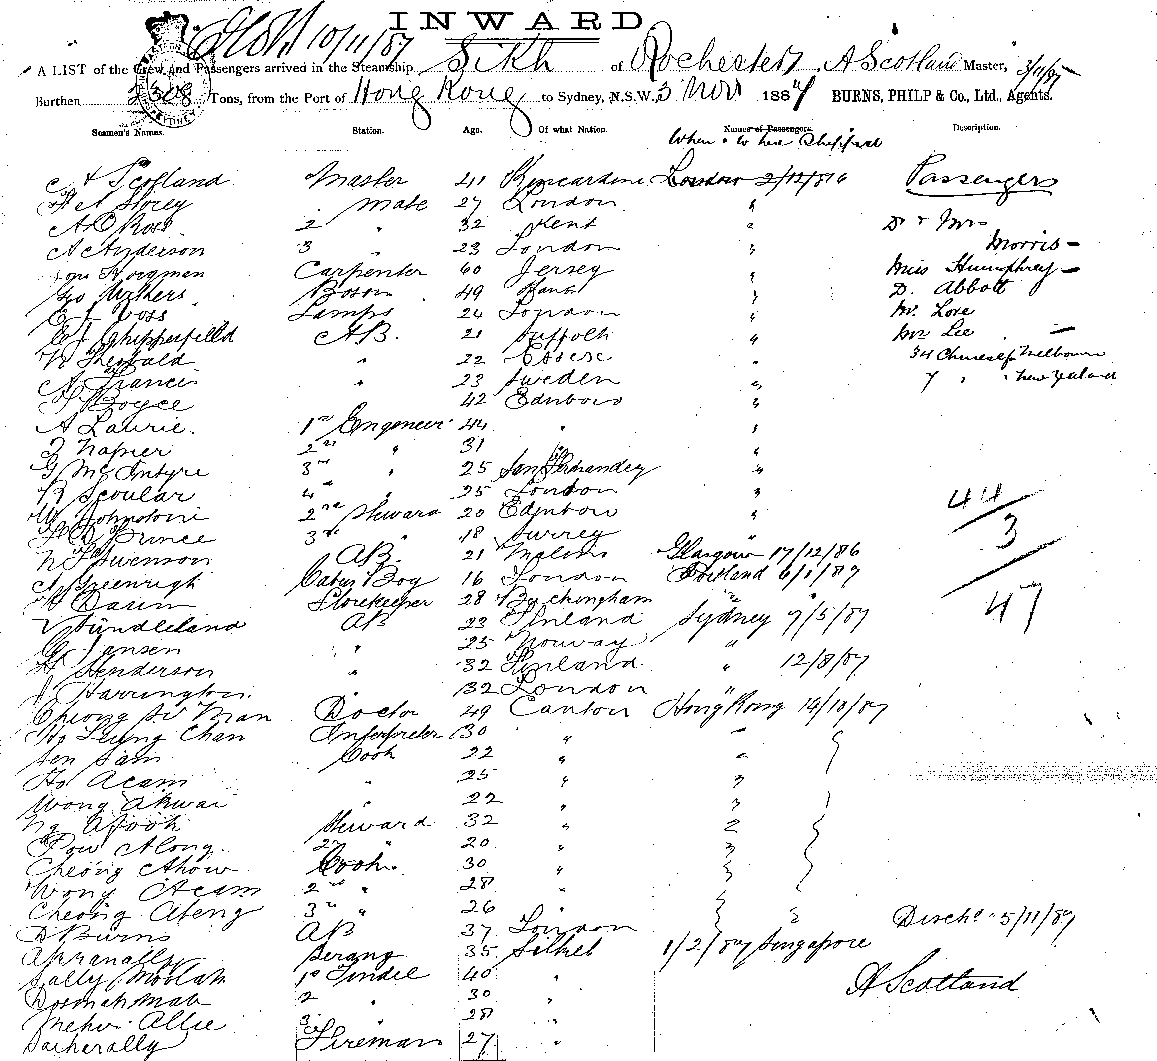 INWARD
10/11/87
A LIST of the Crew and Passengers arrived in the Steamship Sikh of Rochester, A Scotland Master, 3/11/87
Burthen 2508 Tons, from the Port of Hong Kong to Sydney, N.S.W., 3 Nov 1887 BURNS, PHILP & Co., Ltd., Agents.
Seamen's Names. Station. Age. Of what Nation. Names of Passengers. Description.
When & where Shipped
A Scotland Master 41 Kincardine London 2/12/86 Passengers
Storey Mate 27 London "
A Ross 2 " 32 Kent " D & Mrs
A Anderson 3 " 23 London " Morris -
Carpenter 60 Jersey " Miss Humphrey -
Geo Mathers Boson 49 " D. Abbott
E J Voss Lamps 24 London " Mr. Love
Chipperfield A.B. 21 Suffolk " Mr Lee -
Theobald " 22 Essex " 34 Chinese for Melbourne
A Francis " 23 Sweden " 7 " " New Zealand
Boyce 42 Edinboro "
A Laurie. 1st Engeneer 44 " "
Napier 2nd " 31
G McIntyre 3rd " 25 San Fernandez "
R Scoular 4th " 25 London " 44
Johnstone 2nd Steward 20 Edinboro " 3
Prince 3rd " 18 Surrey "
Swenson AB. 21 Glasgow 17/12/86
A Greenrigh Cabin Boy 16 London Portland 6/1/87
Storekeeper 28 Buckingham " 47
Sundleland AB 23 Finland Sydney 9/5/87
Jansen " 25 Norway "
Henderson " 32 Finland " 12/8/87
J Harrington. 32 London "
Cheong Sir Man Doctor 49 Canton Hong Kong 14/10/87
Ho Leung Chan Interpreter 30 " "
Sen Sam Cook 22 " "
Ho Acam " 25 " "
Wong Akwai " 22 " "
Ng Afook Steward 32 " "
Pow Along 2nd " 20 " "
Cheong Ahow Cook. 30 " "
Wong Acam 2nd " 28 "
Cheong Ateng 3rd " 26 " " Disch'd 5/11/87
D Burns AB 37 London
Serang 35 Silhet 1/2/87 Singapore
Sally Moolah 1st Tindel 40 " A Scotland
2 " 30 "
Allie 3 28 "
Fireman 27 "